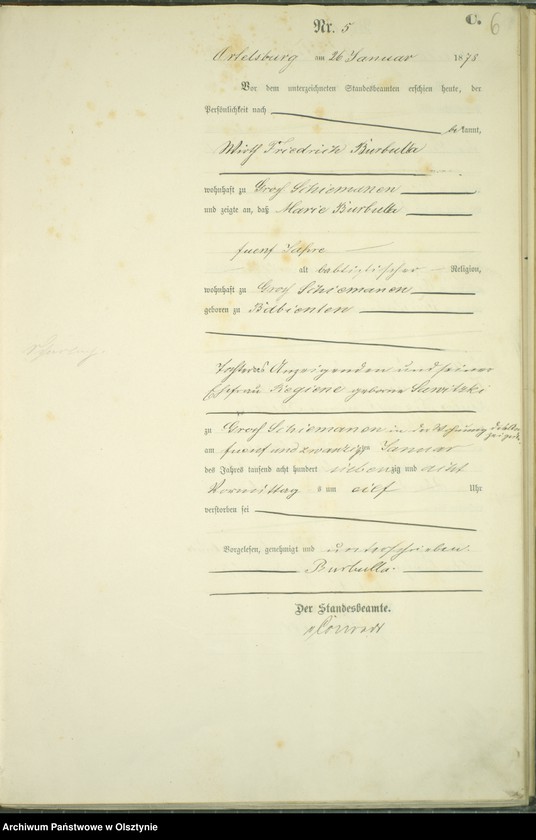 C.
6
Nr. 5
Ortelsburg am 26 Januar 1878
Vor dem unterzeichneten Standesbeamten erschien heute, der
Persönlichkeit nach
bekannt,
Friedrich Burbulla
wohnhaft zu Groß Schiemanen
und zeigte an, daß Marie Burbulla
fuenf Jahre
alt Religion,
wohnhaft zu Groß Schiemanen
geboren zu
Tochter des Anzeigenden und seiner
Ehefrau Regine geborne Sawitzki
zu Groß Schiemanen in der Wohnung des
am fuenf und zwanzig Januar
des Jahres tausend acht hundert siebenzig und acht
Vormittag s um eilf Uhr
verstorben sei
Vorgelesen, genehmigt und unterschrieben.
Burbulla.
Der Standesbeamte.
Archiwum Państwowe w Olsztynie